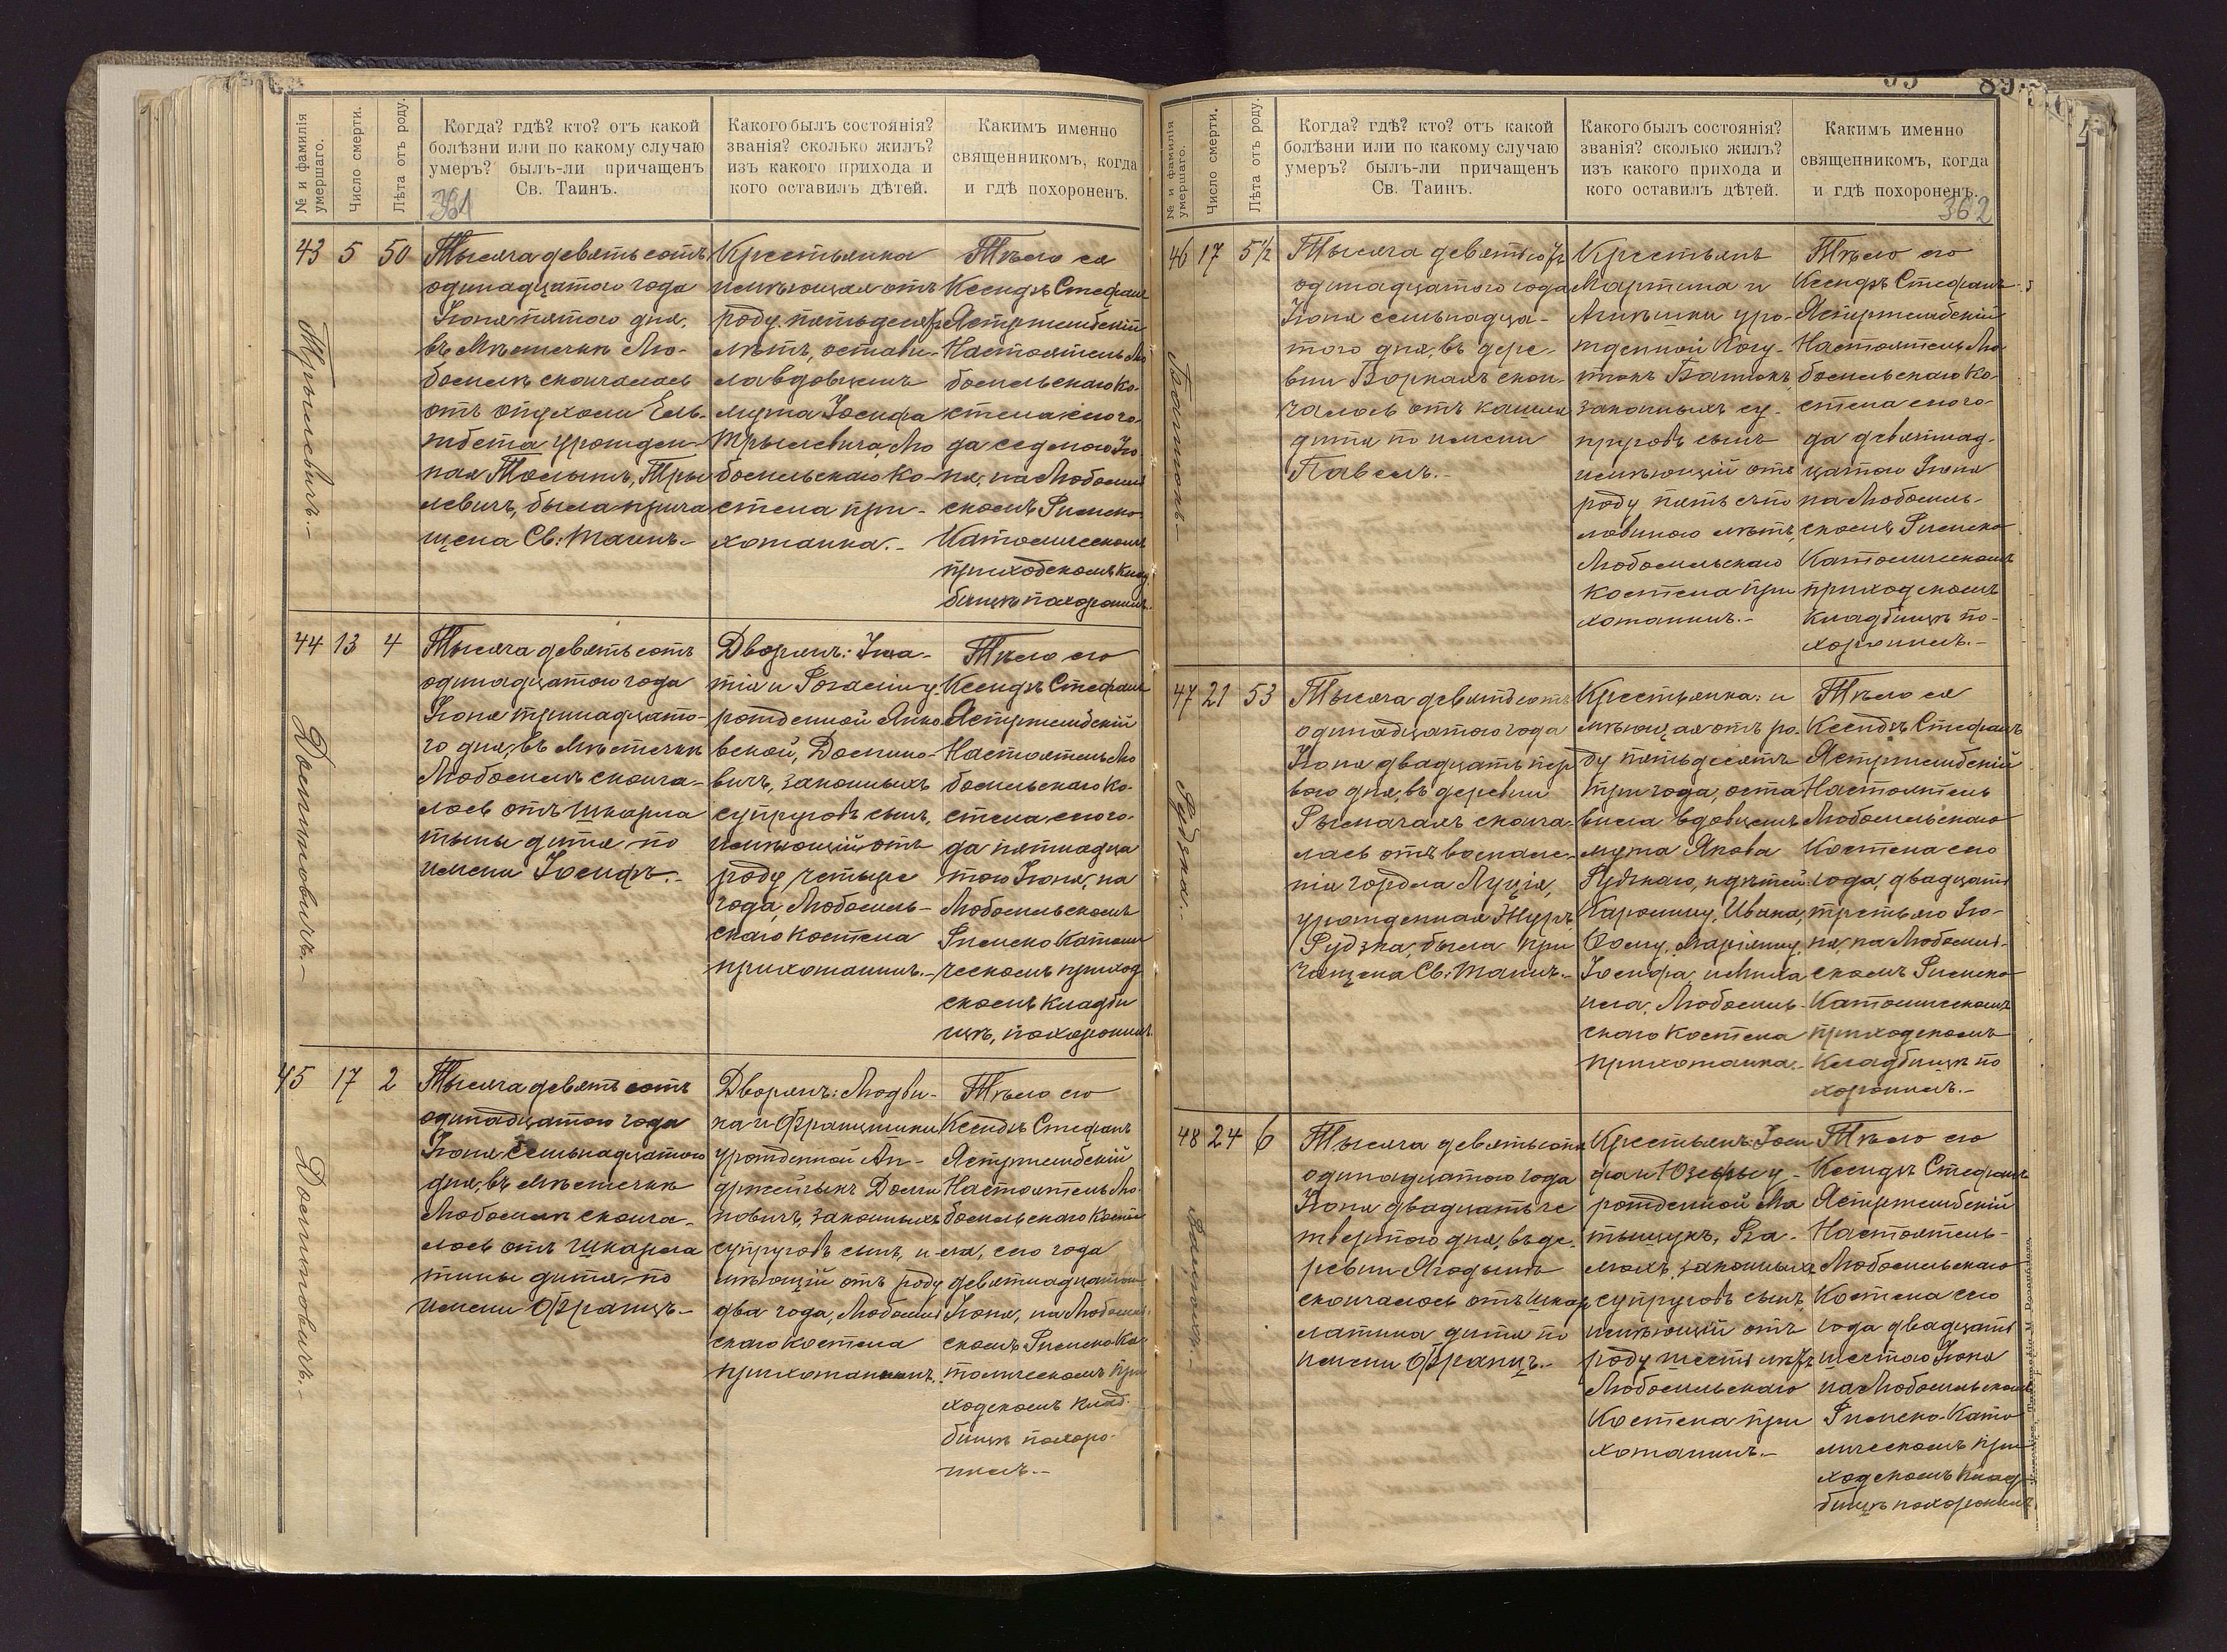 № и фамилія умершаго.
Число смерти.
Лѣта отъ роду.
Когда? гдѣ? кто? отъ какой
болѣзни или по какому случаю
умеръ? былъ-ли причащенъ
Св. Таинъ.
361
Какого былъ состоянія?
званія? сколько жилъ?
изъ какого прихода и
кого оставилъ дѣтей.
Какимъ именно
священникомъ, когда
и гдѣ похороненъ.
43
5
50
Тысяча девятьсотъ
одинадцатого года
Іюня пятого дня,
въ Мѣстечкѣ Лю-
бомлѣ скончалась
отъ опухоли Ель-
жбета урожден-
ная
левичъ, была прича
щена Св: Таинъ.-
Крестьянка
имѣющая отъ
роду пятьдесятъ
лѣтъ, остави-
ла вдовцемъ
мужа Іосифа
Любомльскаго Ко-
стела при-
хожанка.-
Тѣло ея
Ксендзъ Стефанъ
Ястржембскій
Настоятель Лю
бомльскаго Ко-
стела сего го-
да седмого Ію
ня, на Любомль
скомъ Римско
Католическомъ
приходскомъ клад
бищѣ похоронилъ.
44
13
4
Доминовичъ.-
Тысяча девятьсотъ
одинадцатого года
Іюня тринадцато-
го дня, въ Мѣстечкѣ
Любомлѣ сконча-
лось отъ шкарла
тыны дитя по
имени Іосифъ.-
Дворянъ: Игна-
тія и Розаліи у-
рожденной Янко
вской, Домино-
вичъ, законныхъ
супруговъ сынъ,
имѣющій отъ
роду четыре
года, Любомль-
скаго костела
прихожанинъ.-
Тѣло его
Ксендзъ Стефанъ
Ястржембскій
Настоятель Лю
бомльскаго Ко-
стела сего го-
да пятнадца
того Іюня, на
Любомльскомъ
Римско Католи
ческомъ приход
скомъ кладби
щѣ, похоронилъ.
45
17
2
Доминовичъ.-
Тысяча девятьсотъ
одинадцатого года
Іюня семьнадцатого
дня, въ Мѣстечкѣ
Любомлѣ сконча-
лось отъ шкарла
тины дитя по
имени Францъ.-
Дворянъ: Людви-
ка и Францишки
урожденной Ан-
држейчыкъ Доми
новичъ, законныхъ
супруговъ сынъ, и-
мѣющій отъ роду
два года, Любомль
скаго костела
прихожанинъ.
Тѣло его
Ксендзъ Стефанъ
Ястржембскій
Настоятель Лю-
бомльскаго Косте
ла, сего года
девятнадцатого
Іюня, на Любомль
скомъ Римско Ка
толическомъ при
ходскомъ клад
бищѣ похоро-
нилъ.-
№ и фамилія умершаго.
Число смерти.
Лѣта отъ роду.
Когда? гдѣ? кто? отъ какой
болѣзни или по какому случаю
умеръ? былъ-ли причащенъ
Св. Таинъ.
Какого былъ состоянія?
званія? сколько жилъ?
изъ какого прихода и
кого оставилъ дѣтей.
Какимъ именно
священникомъ, когда
и гдѣ похороненъ.
362
46
17
5 1/2
Тысяча девятьсотъ
одинадцатого года
Іюня семьнадца-
того дня, въ дере-
вни Боркахъ скон-
чалось отъ кашля
дитя по имени
Павелъ.-
Крестьянъ
Мартина и
Агнѣшки уро-
жденной
законныхъ су-
пруговъ сынъ
имѣющій отъ
роду пять съ по
ловиною лѣтъ,
Любомльскаго
костела при
хожанинъ.-
Тѣло его
Ксендзъ Стефанъ
Ястржембскій
Настоятель Лю
бомльскаго Ко-
стела сего го-
да девятнад-
цатого Іюня
на Любомль-
скомъ Римско
Католическомъ
приходскомъ
кладбищѣ по-
хоронилъ.-
47
21
53
Рудзка.-
Тысяча девятьсотъ
одинадцатого года
Іюня двадцать пер
вого дня, въ деревни
Рымачахъ сконча-
лась отъ воспале-
нія горла Луція,
урожденная Журъ
Рудзка, была при
чащена Св: Таинъ.-
Крестьянка: и
мѣющая отъ ро-
ду пятьдесятъ
три года, оста
вила вдовцемъ
мужа Якова
Рудзкаго, и дѣтей:
Каролину, Ивана,
Марянну,
Іосифа, и Миха
ила, Любомль-
скаго костела
прихожанка.-
Тѣло ея
Ксендзъ Стефанъ
Ястржембскій
Настоятель
Любомльскаго
Костела сего
года, двадцать
третьяго Ію-
ня, на Любомль-
скомъ Римско
Католическомъ
приходскомъ
кладбищѣ по
хоронилъ.-
48
24
6
Тысяча девятьсотъ
одинадцатого года
Іюня двадцать че
твертого дня, въ де-
ревни Ягодынъ
скончалось отъ шкар
латина дитя по
имени Францъ.-
Крестьянъ: Іоси
фа и Юзефы у-
рожденной Ма
законныхъ
супруговъ сынъ,
имѣющій отъ
роду шесть лѣтъ
Любомльскаго
Костела при
хожанинъ.-
Тѣло его
Ксендзъ Стефанъ
Ястржембскій
Настоятель-
Любомльскаго
Костела сего
года двадцать
шестого Іюня
на Любомльскомъ
Римско-Като
лическомъ при
ходскомъ клад-
бищѣ похоронилъ